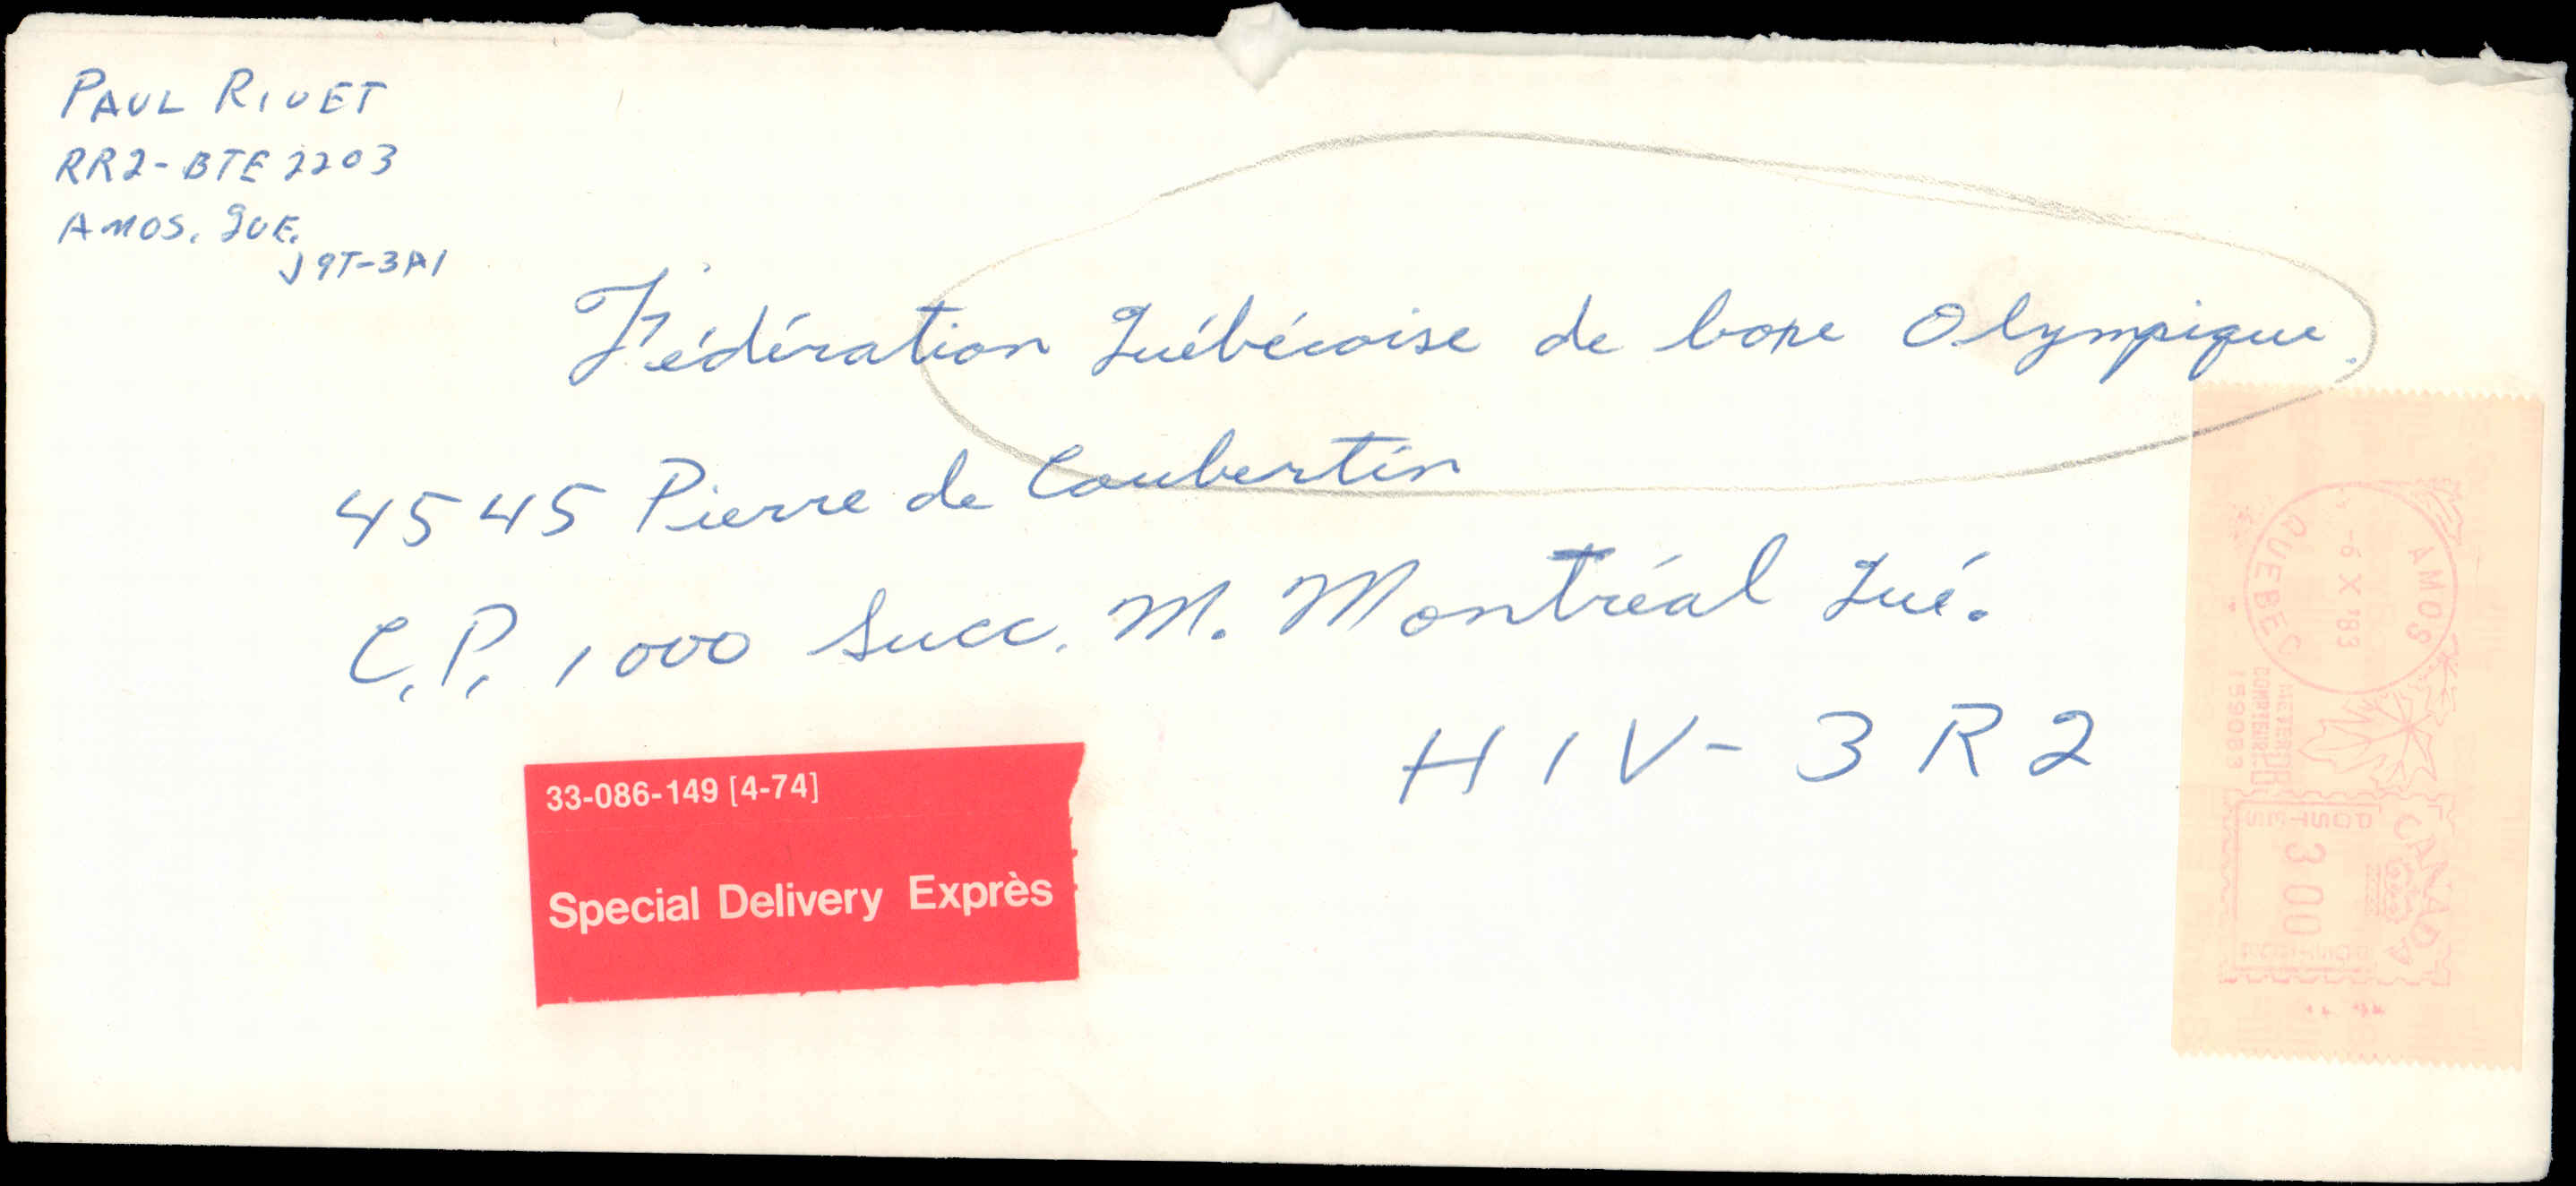 PAUL RIVET
RR2-BTE 2203
AMOS. QUE.
J9T-3A1
Fédération Québécoise de boxe Olympique.
4545 Pierre de Coubertin
C.P. 1000 Succ. M. Montréal Qué.
H1V-3R2
33-086-149 [4-74]
Special Delivery Exprès
AMOS
-6 X '83
QUEBEC
METER DB
COMPTEUR
159083
CANADA
POSTES
300